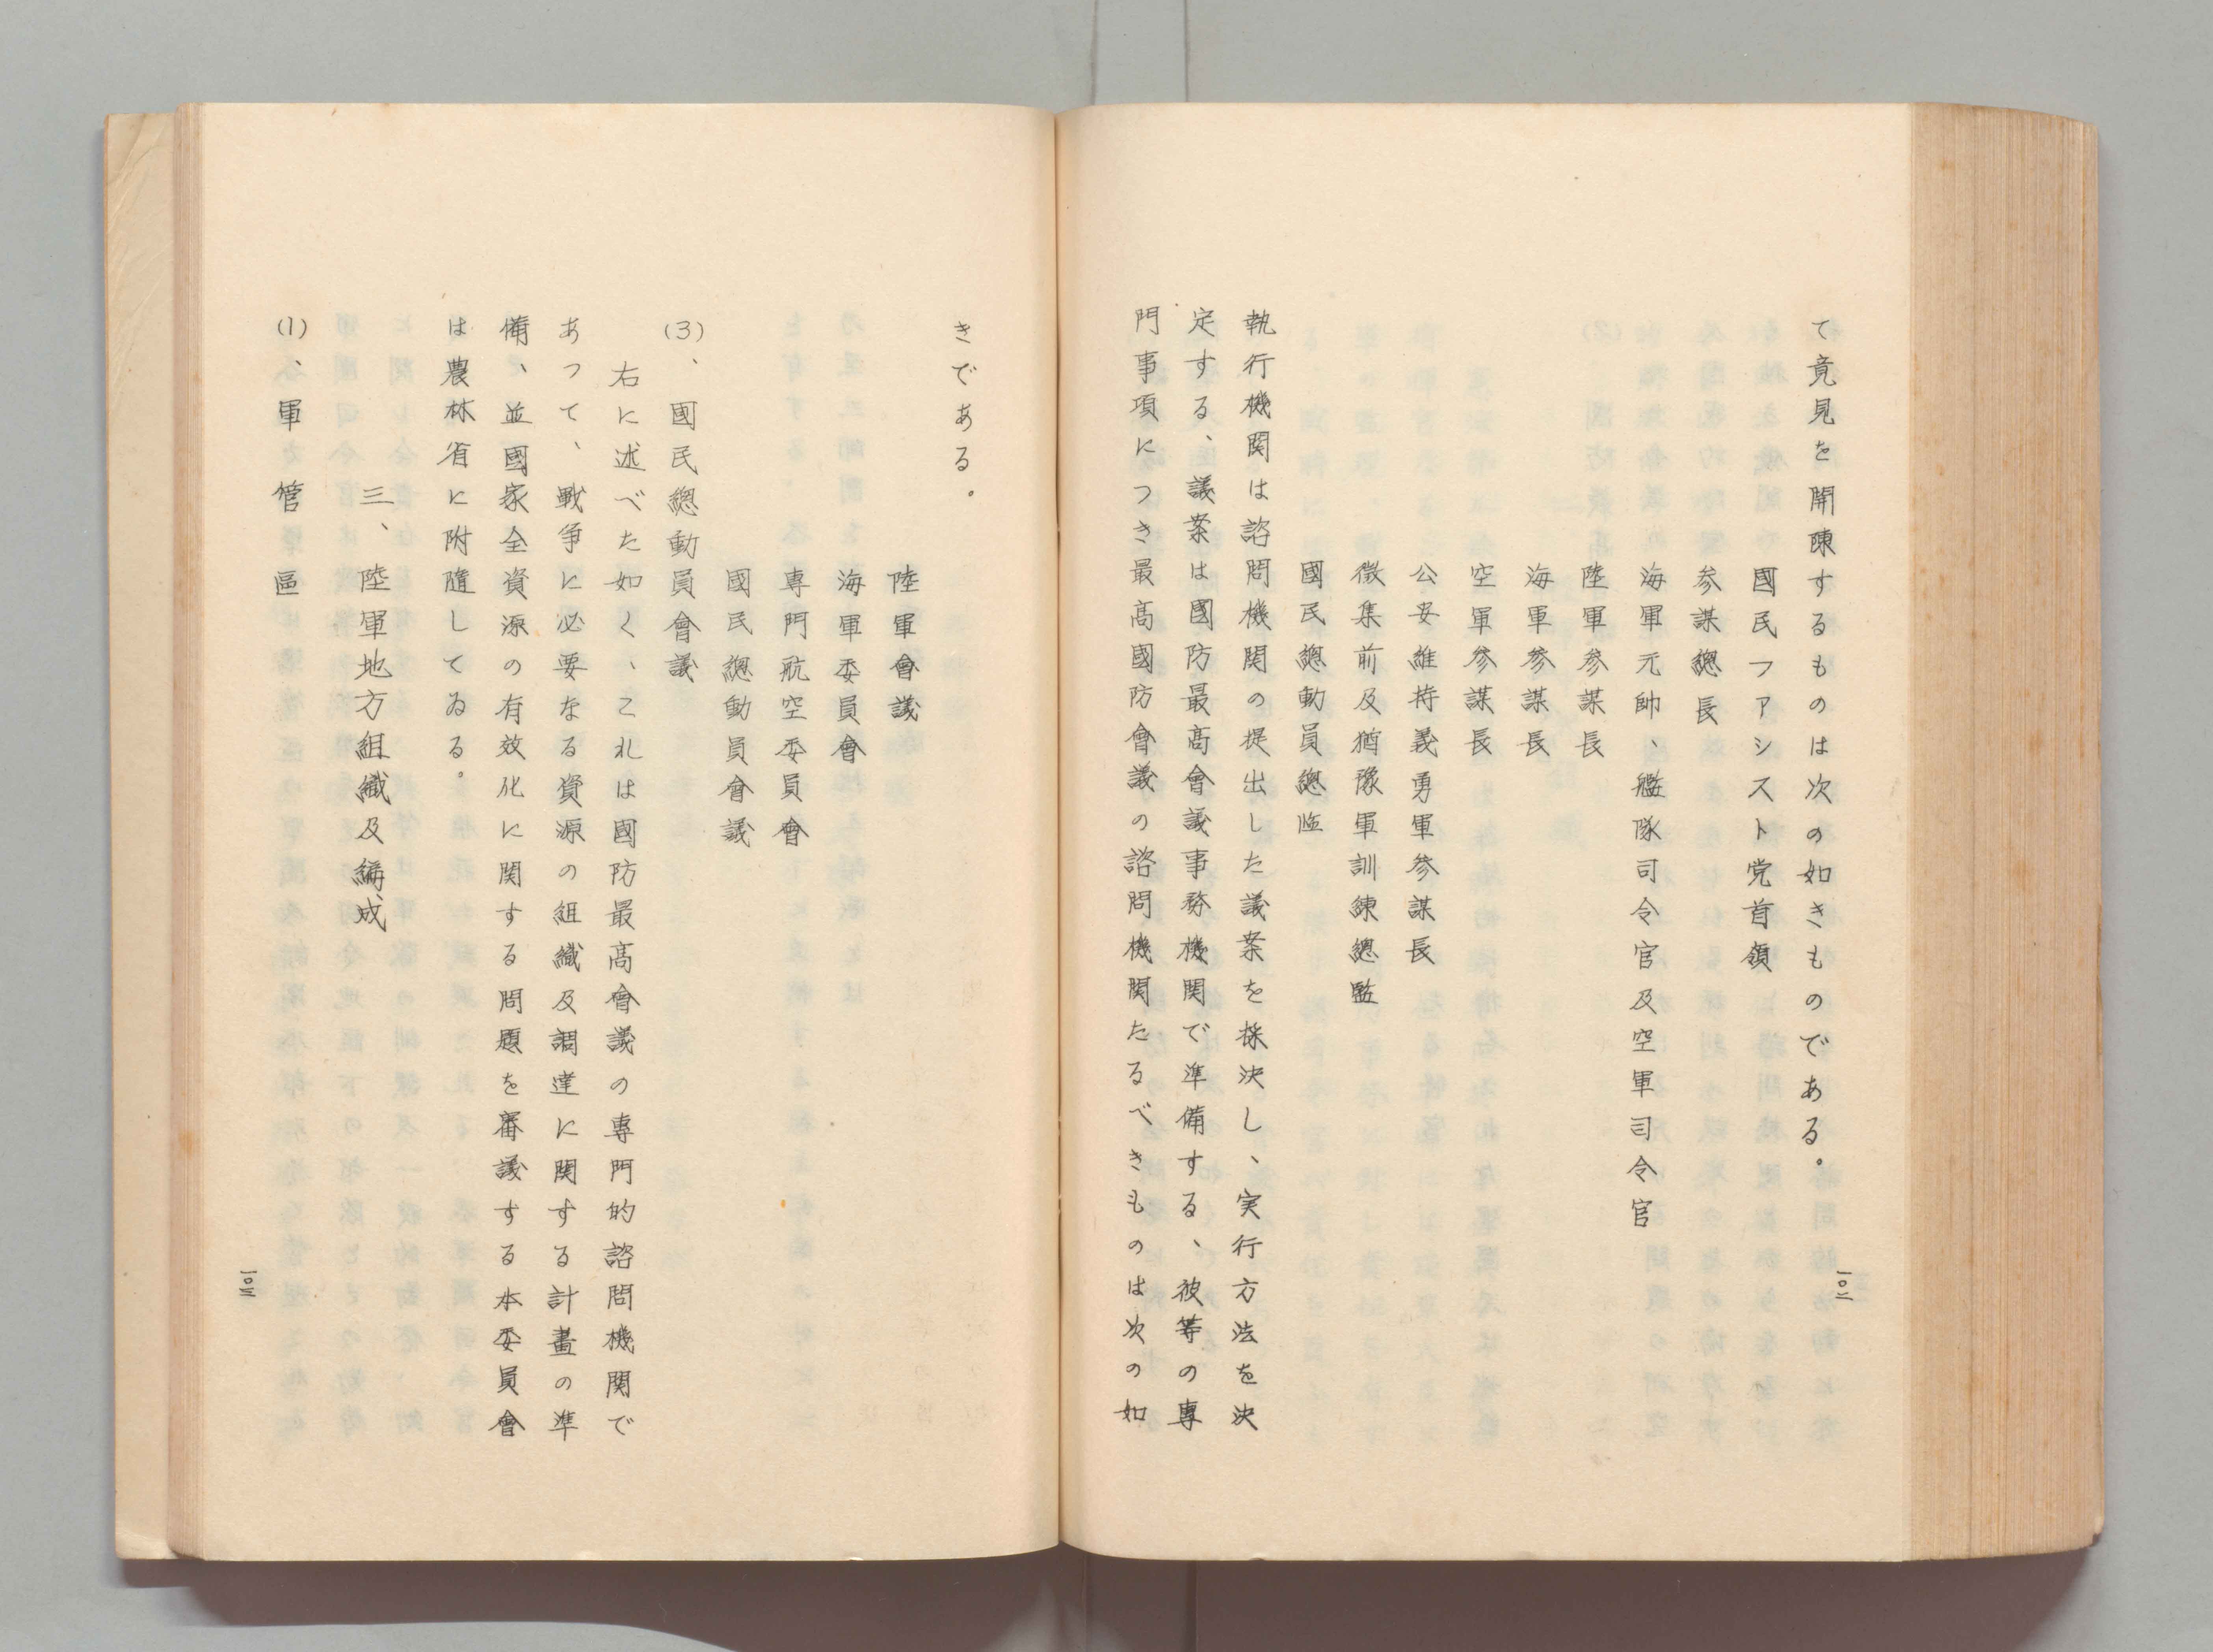 て竟見を開陳するものは次の如きものである。
國民ファシスト党首領
参謀總長
海軍元帥、艦隊司令官及空軍司令官
陸軍参謀長
海軍参謀長
空軍参謀長
公安維持義勇軍参謀長
徴集前及猶豫軍訓練總監
國民總動員總監
執行機関は諮問機関の提出した議案を採決し、実行方法を決
定する、議案は國防最高會議事務機関で準備する、彼等の專
門事項につき最高國防會議の諮問機関たるべきものは次の如
一〇二
きである。
陸軍會議
海軍委員會
専門航空委員會
國民總動員會議
(3)、國民總動員會議
右に述べた如く、これは國防最高會議の專門的諮問機関で
あって、戦争に必要なる資源の組織及調達に関する計畫の準
備、並國家全資源の有效化に関する問題を審議する本委員會
は農林省に附隨してゐる。
三、陸軍地方組織及編成
(1)、軍管區
一〇三